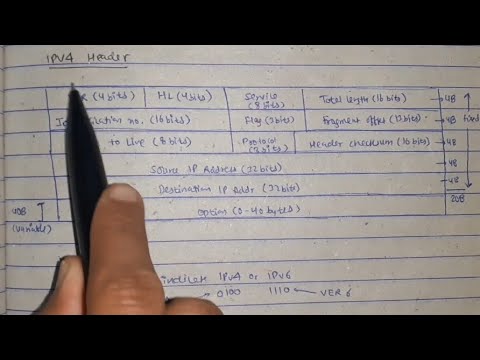 IPV4 Header
(4bits) HL (4bits) Service (8bits) Total length (16bits) 4B
no. (16bits) Flag (3bits) Fragment offset (13bits) 4B
to Live (8bits) Protocol (8bits) Header checksum (16bits) 4B
Source IP Address (32bits) 4B
Destination IP Addr (32bits) 4B
20B
Option (0-40bytes)
40B
(Variable)
indicates IPv4 or IPv6
0100 1110 VER 6